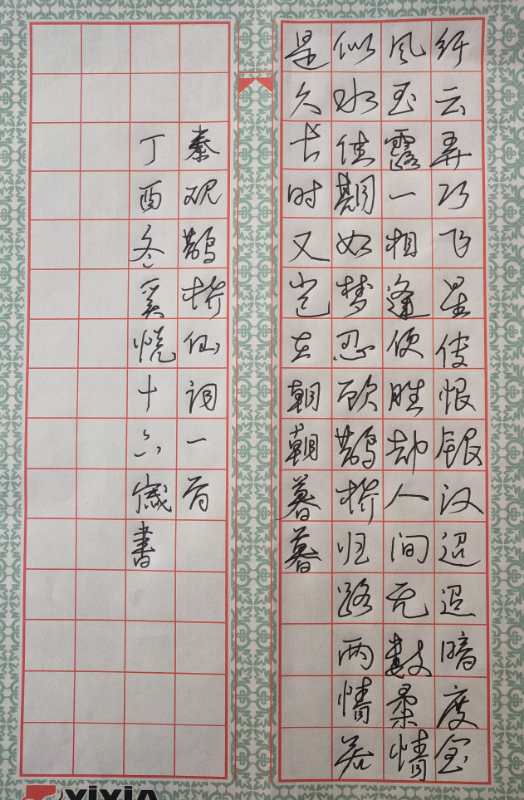 纤云弄巧飞星传恨银汉迢迢暗度金
风玉露一相逢便胜却人间无数柔情
似水佳期如梦忍顾鹊桥归路两情若
是久长时又岂在朝朝暮暮
秦观鹊桥仙词一首
丁酉冬奚十六岁書